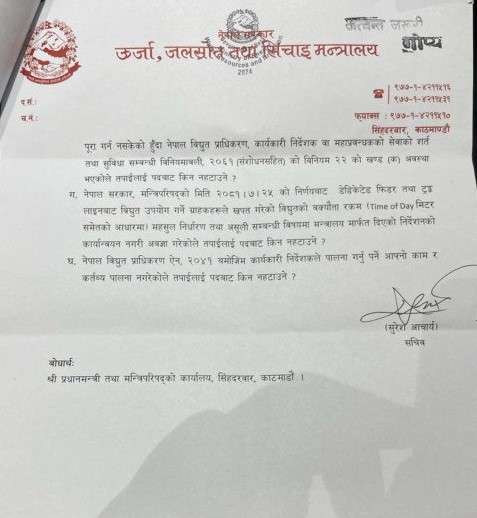 नेपाल सरकार
अत्यन्त जरूरी
ऊर्जा, जलस्रोत तथा सिंचाइ मन्त्रालय
गोप्य
2074
९७७-१-४२११५१६
९७७-१-४२११५३१
प.सं:
च.नं:
फ्याक्स : ९७७-१-४२११५१०
सिंहदरवार, काठमाण्डौ
पूरा गर्न नसकेको हुँदा नेपाल विद्युत प्राधिकरण, कार्यकारी निर्देशक वा महाप्रबन्धकको सेवाको शर्त
तथा सुविधा सम्बन्धी विनियमावली, २०६१ (संशोधनसहित) को विनियम २२ को खण्ड (क) अवस्था
भएकोले तपाईलाई पदबाट किन नहटाउने ?
ग. नेपाल सरकार, मन्त्रिपरिषद्को मिति २०८१।७।२५ को निर्णयबाट डेडिकेटेड फिडर तथा ट्रङ्क
लाइनबाट विद्युत उपयोग गर्ने ग्राहकहरुले खपत गरेको विद्युतको बक्यौता रकम (Time of Day मिटर
समेतको आधारमा) महसुल निर्धारण तथा असूली सम्बन्धी विषयमा मन्त्रालय मार्फत दिएको निर्देशनको
कार्यान्वयन नगरी अवज्ञा गरेकोले तपाईलाई पदबाट किन नहटाउने ?
घ. नेपाल विद्युत प्राधिकरण ऐन, २०४१ बमोजिम कार्यकारी निर्देशकले पालना गर्नु पर्ने आफ्नो काम र
कर्तव्य पालना नगरेकोले तपाईलाई पदबाट किन नहटाउने ?
(सुरेश आचार्य)
सचिव
बोधार्थ:
श्री प्रधानमन्त्री तथा मन्त्रिपरिषद्को कार्यालय, सिंहदरवार, काठमाडौं ।